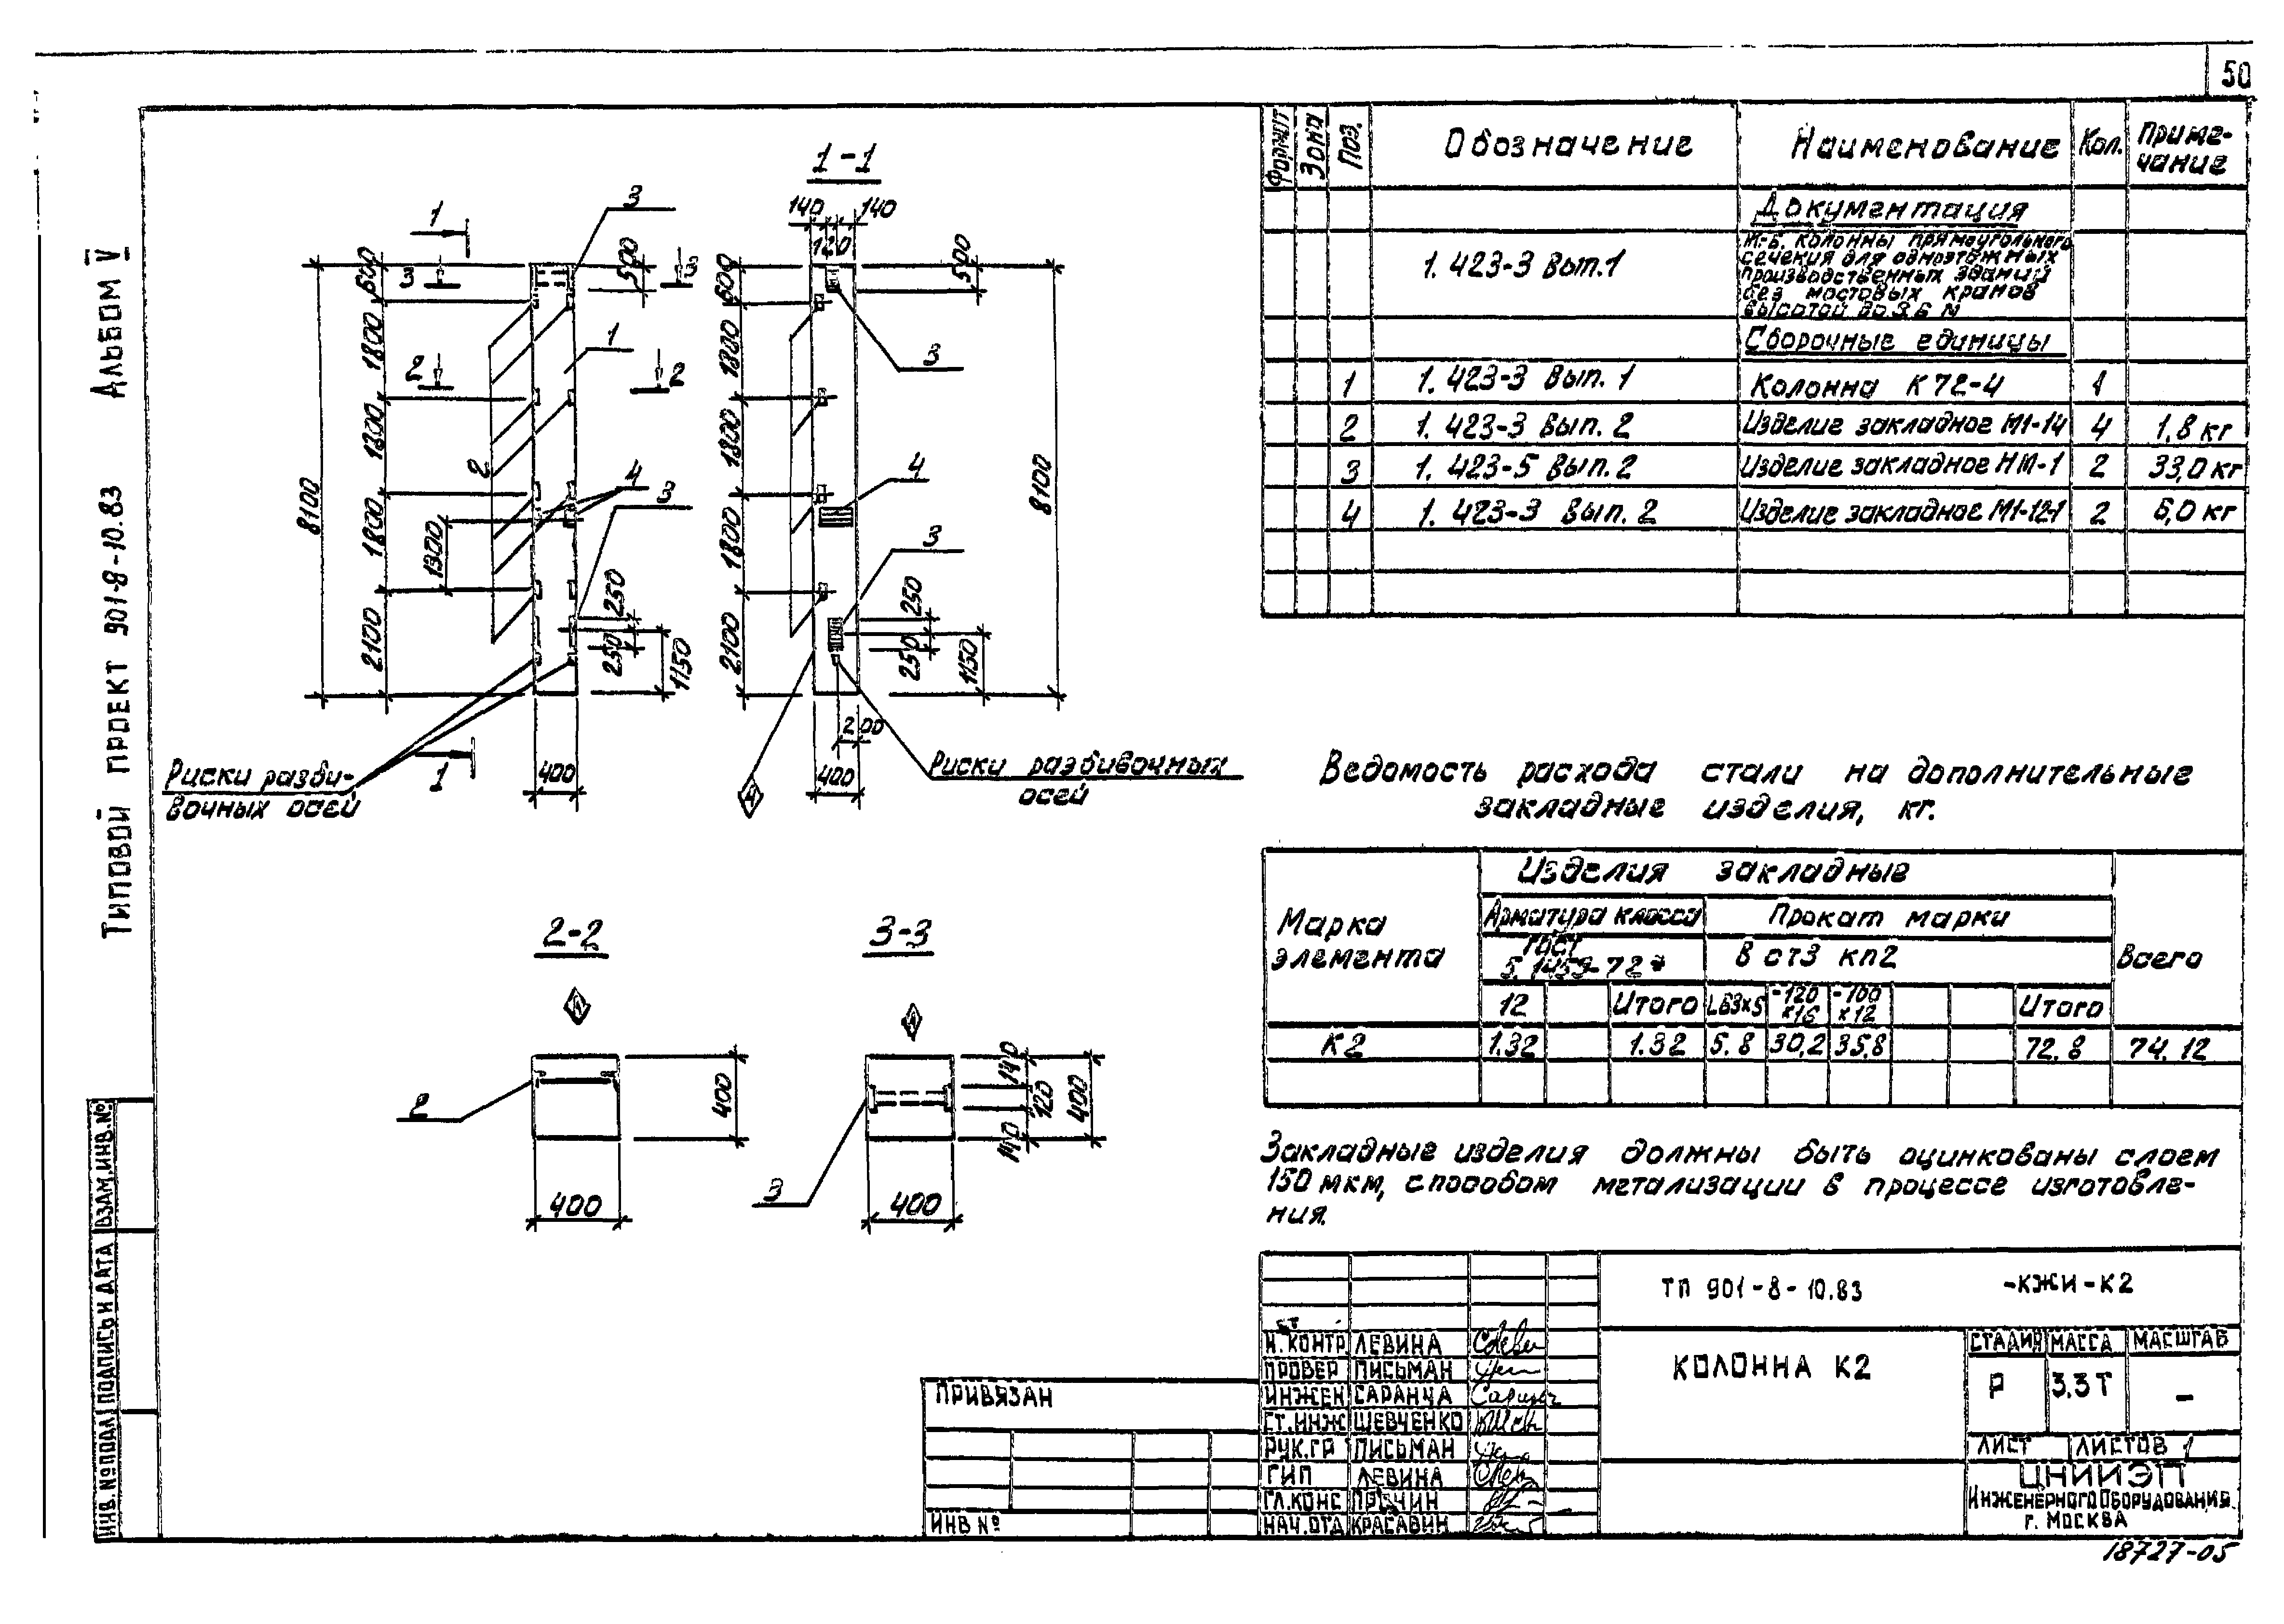 50
Типовой проект 901-8-10.83 Альбом V
1-1
140
140
120
3
1
600
500
3
3
1800
1
2
2
1800
2
4
3
8100
1800
1300
250
250
2100
1150
400
1
Риски разби-
вочных осей
600
500
1800
3
1800
4
8100
1800
3
250
250
2100
1150
200
400
4
Риски разбивочных
осей
2-2
4
2
400
400
3-3
4
3
140
120
140
400
400
Формат Зона Поз. Обозначение Наименование Кол. Приме-
чание
Документация
1.423-3 Вып.1
Ж-б. колонны прямоугольного
сечения для одноэтажных
производственных зданий
без мостовых кранов
высотой до 9,6 м
Сборочные единицы
1 1.423-3 Вып.1 Колонна К72-4 1
2 1.423-3 Вып.2 Изделие закладное М1-14 4 1,8 кг
3 1.423-5 Вып.2 Изделие закладное НМ-1 2 33,0 кг
4 1.423-3 Вып.2 Изделие закладное М1-12-1 2 6,0 кг
Ведомость расхода стали на дополнительные
закладные изделия, кг.
Марка
элемента
Изделия закладные
Всего
Арматура класса Прокат марки
ГОСТ
5.1459-72* В ст3 кп2
12 Итого L63x5 -120
x16 -100
x12 Итого
К2 1.32 1.32 5.8 30,2 35,8 72.8 74.12
Закладные изделия должны быть оцинкованы слоем
150 мкм, способом метализации в процессе изготовле-
ния.
ТП 901-8-10.83 -КЖИ-К2
КОЛОННА К2
СТАДИЯ МАССА МАСШТАБ
Р 3.3Т –
ЛИСТ ЛИСТОВ 1
ЦНИИЭП
ИНЖЕНЕРНОГО ОБОРУДОВАНИЯ
г. МОСКВА
СТ
Н.КОНТР. ЛЕВИНА
ПРОВЕР ПИСЬМАН
ИНЖЕН САРАНЧА
СТ.ИНЖ ШЕВЧЕНКО
РУК.ГР ПИСЬМАН
ГИП ЛЕВИНА
ГЛ.КОНС
НАЧ.ОТД КРАСАВИН
ПРИВЯЗАН
ИНВ №
ИНВ.№ ПОДЛ. ПОДПИСЬ И ДАТА ВЗАМ.ИНВ.№
18727-05